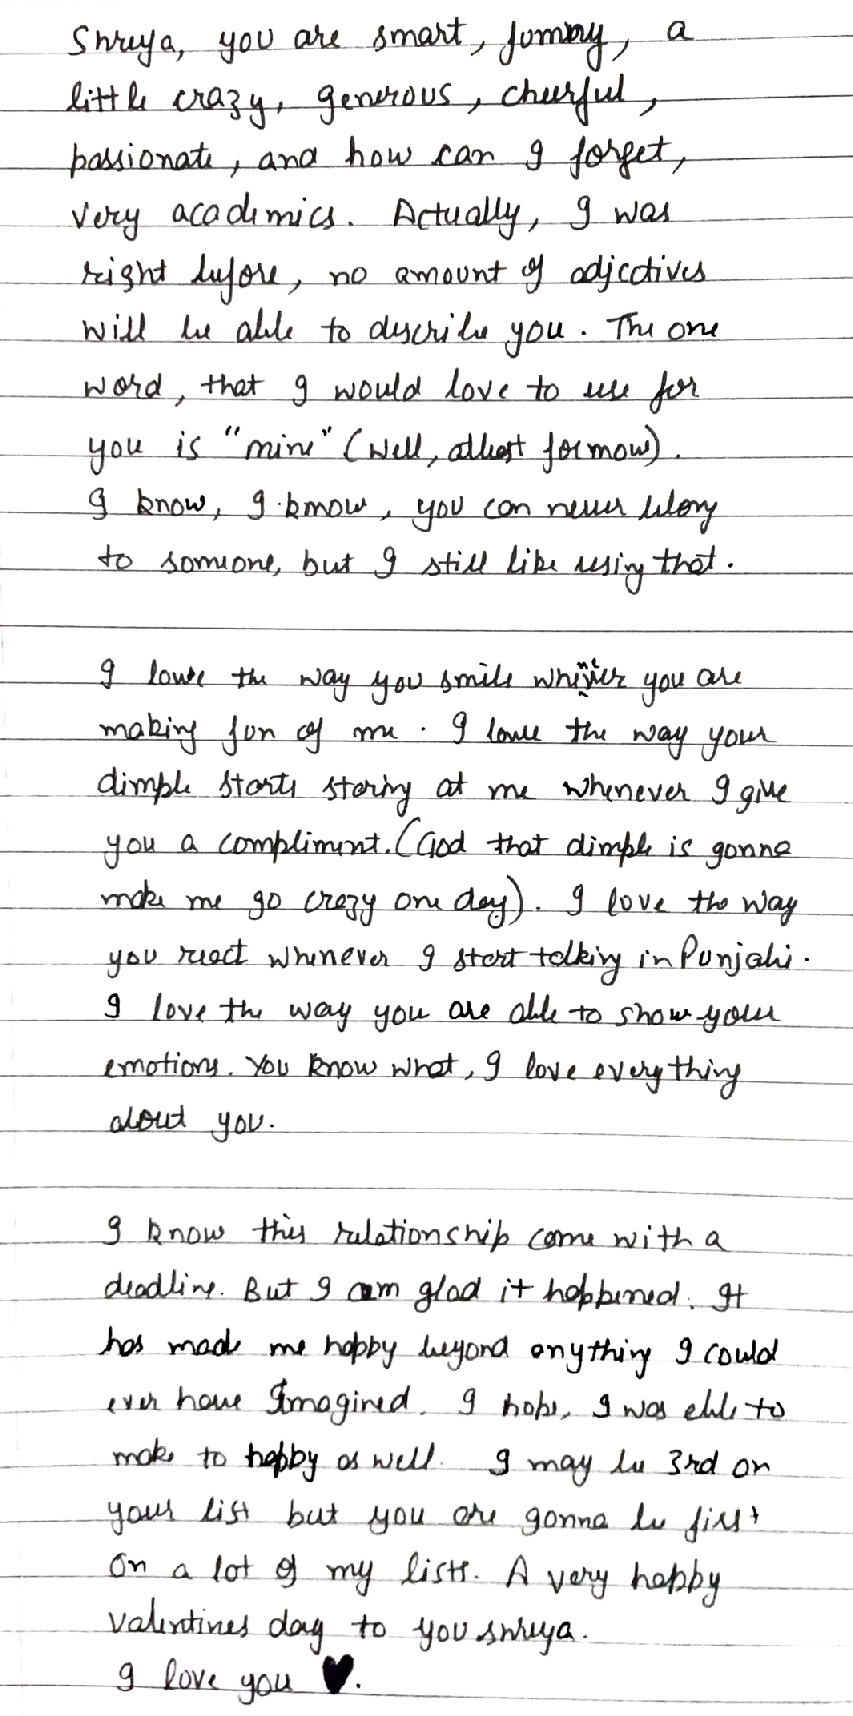 Shreya, you are smart, funny, a
little crazy, generous, cheerful,
passionate, and how can I forget,
very academics. Actually, I was
right before, no amount of adjectives
will be able to describe you. The one
word, that I would love to use for
you is "mine" (well, atleast for now).
I know, I know, you can never belong
to someone, but I still like using that.
I love the way you smile whenever you are
making fun of me. I love the way your
dimple starts staring at me whenever I give
you a compliment. (God that dimple is gonna
make me go crazy one day). I love the way
you react whenever I start talking in Punjabi.
I love the way you are able to show your
emotions. You know what, I love everything
about you.
I know this relationship come with a
deadline. But I am glad it happened. It
has made me happy beyond anything I could
ever have Imagined. I hope, I was able to
make to happy as well. I may be 3rd on
your list but you are gonna be first
on a lot of my lists. A very happy
valentines day to you shreya.
I love you ♥.